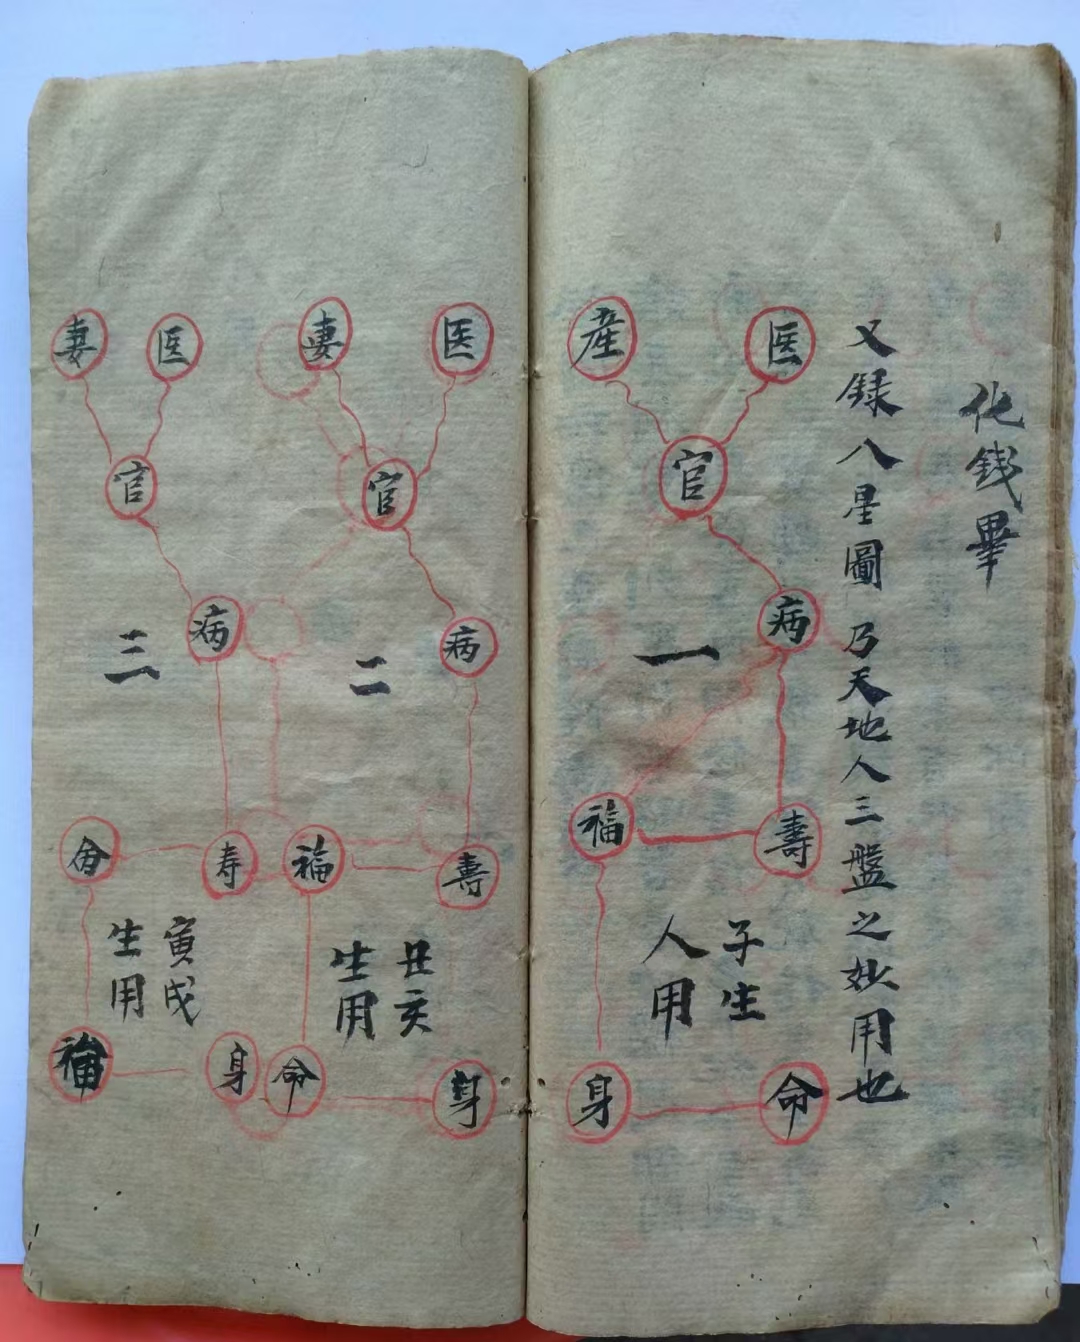 化錢畢
又録八星圖乃天地人三盤之妙用也
医
産
官
病
一
壽
福
子生
人用
命
身
医
妻
官
病
二
壽
福
丑亥
生用
身
命
医
妻
官
病
三
寿
寅戌
生用
身
福